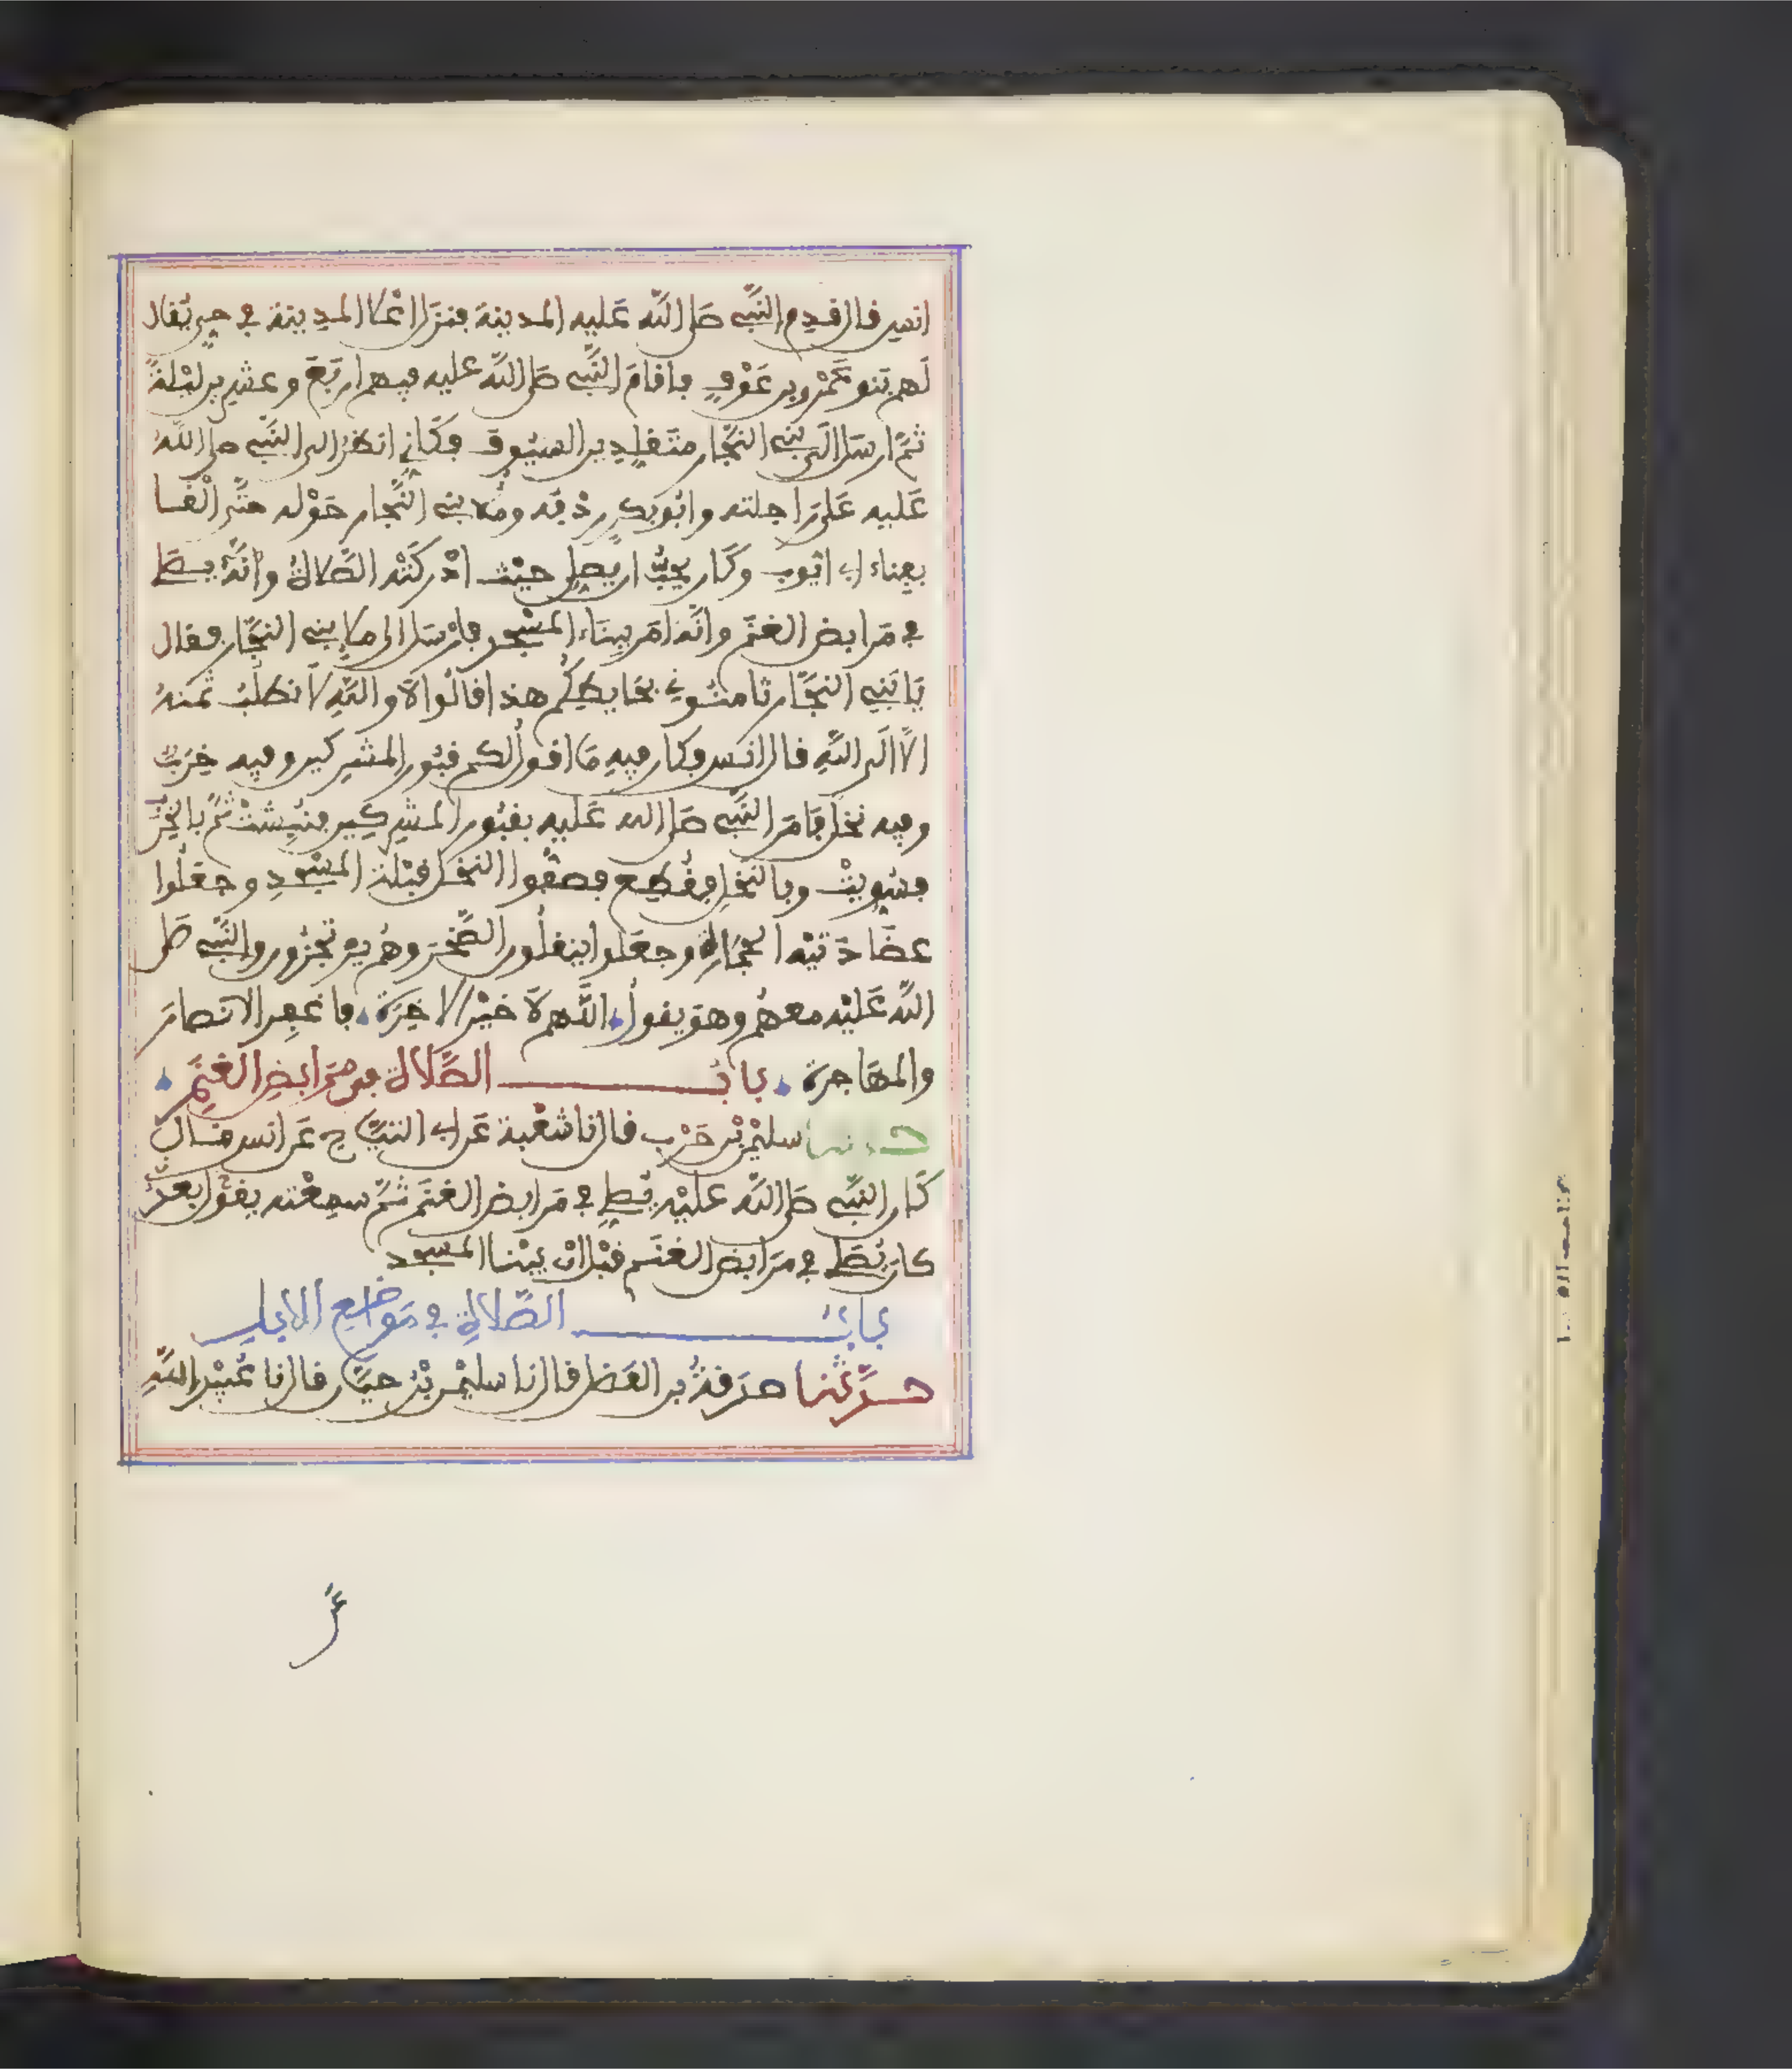 انس قال قدم النَّبي صَلى اللّه عَليه المدينة فنزل اعْلا المدِينة في حيٍّ يُقال
لَهم بَنو عَمْرو بن عَوْفٍ فاقامَ النَّبي صَلى اللّه عليه فيهم اربَعَ وعشرين ليْلةً
ثمَّ ارسَل الَى بَني النجَّار متقلِدِين السيُوف فكَاني انظرُ الى النَّبي صلى اللّهُ
عَليه عَلى رَاحلته وابُو بَكر رِدْفه ومَلا بني النَّجار حَوْله حتَّى الْقا
بفِناء ابي ايُّوب وكَان يحِبُّ ان يصَلي حيْث ادْركَتْه الصَّلاةُ وانَّهُ يصَلي
في مَرابض الغنَم وانَّه امَر ببِنَاء المسْجد فارْسَل الى ملإ بني النجَّار فقال
يَا بَنِي النجَّار ثامنُوني بحَايطِكُم هذا قالُوا لاَ واللَّهِ لاَ نطلُبُ ثمَنهُ
الاَّ الَى اللَّهِ قال انَس وكان فيهِ مَا اقولُ لكم قبُور المشركين وفيه خِرَبٌ
وفيه نخل فامَر النَّبي صَلى الله عَليه بقبُور المشركِين فنُبِشتْ ثمَّ بالخِرَب
فسُوِيتْ وبالنخلِ فقُطِع فصفُّوا النخل قِبْلة المسْجدِ وجعَلُوا
عضَادَتيْه الحجَارَة وجعَلوا ينقلُون الصَّخرَ وهُم يرتجزون والنَّبي صَلى
اللّه عَليْه معهُم وهوَ يقولُ اللَّهم لاَ خيْر الا خيرُ الاخِرَة فاغفِر الانصارَ
والمهَاجرَة بابُ الصَّلاة في مَرَابضِ الغنَمِ
حدثنا سليْمن بْن حَرْب قال نا شعْبة عَن ابي التيَّاح عَن انس قال
كَان النَّبي صَلى اللّه عليْه يُصَلِي في مَرابض الغنَم ثمَّ سمِعْته يقُول بعدُ
كانَ يُصَلي في مرَابض الغنَم قبْل انْ يبْنا المسجد
بابُ الصَّلاةِ في مَواضِع الابِل
حدَّثنا صدَقةُ بن الفَضل قال نا سليْمن بْن حيَّان قال نا عُبيْد اللَّهِ